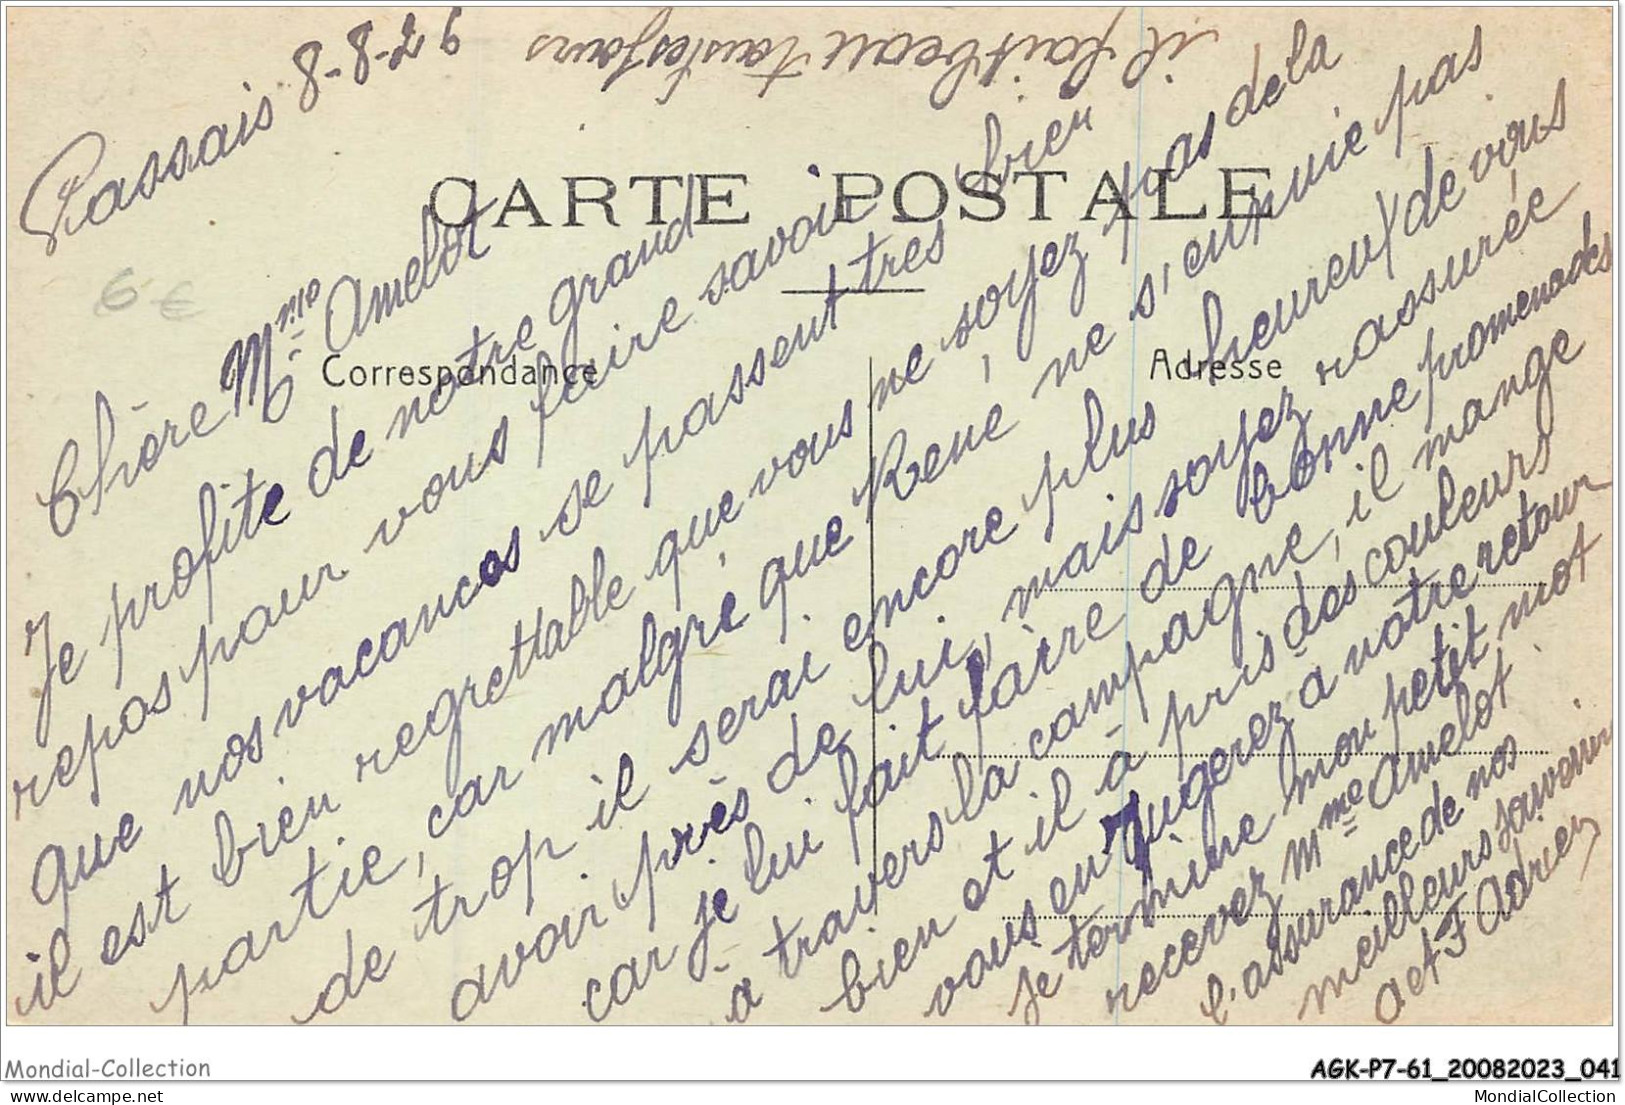 il fait beau tous les jours
Passais 8-8-29
CARTE POSTALE
Correspondance
Adresse
6 €
Chère Mme Amelot
Je profite de notre grand
repos pour vous faire savoir bien
que nos vacances se passent tres
il est bien regrettable que, vous ne soyez pas de la
partie, car malgré que René, ne s'ennuie pas
de trop il serai encore plus heureux de vous
avoir près de lui, mais soyez rassurée
car je lui fait faire de bonne promenades
à travers la campagne, il mange
bien et il à pris des couleurs
vous en jugerez a notre retour
je termine mon petit mot
recevez Mme Amelot
l'assurance de nos
meilleurs souvenir
A et F Adrien
Mondial-Collection
AGK-P7-61_20082023_041
www.mondialcollection.net
MondialCollection.com